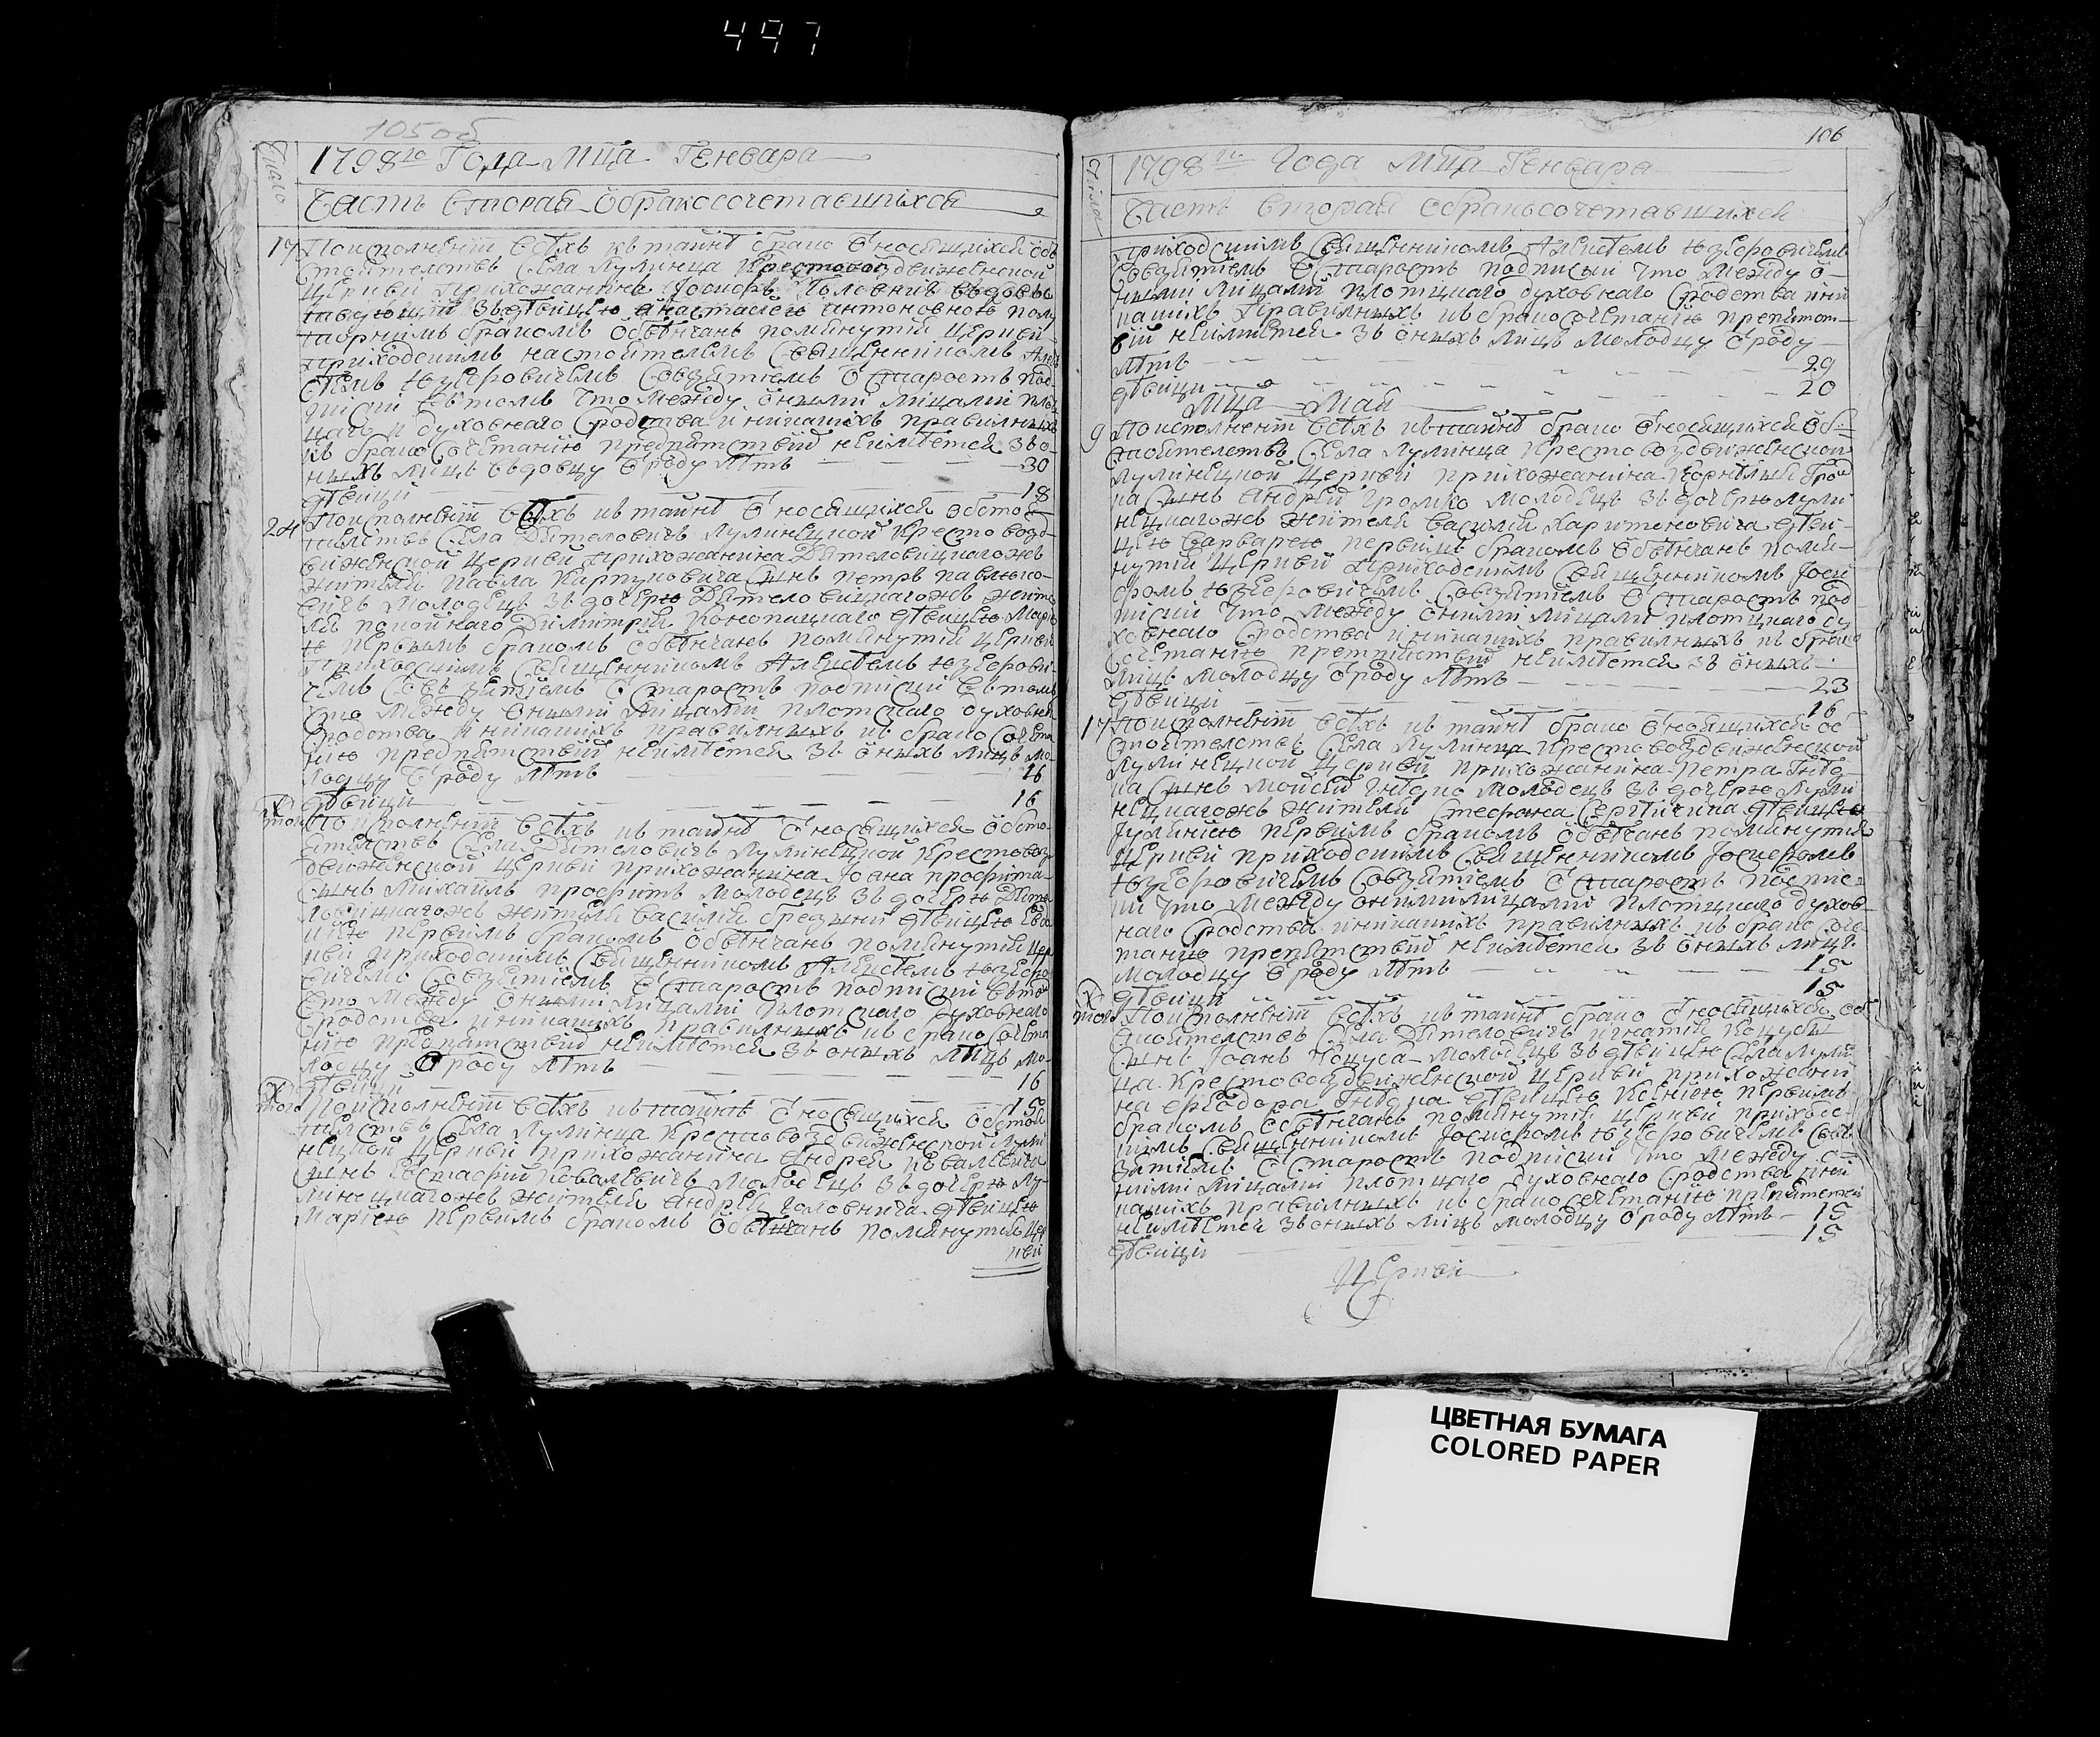 497
105об
Число
1798го Года Мца Генвара
Часть вторая ѡбракосочетавшихся
17 По исполненіи всѣхъ къ тайнѣ брако ѿносящихся обс
тоятелствъ села Лулинца Крестовоздвиженской
церкви прихожанина Іосифъ Головничъ вдовъ
ствующій зъ девицею Анастасіею Антоновною полу
торнимъ бракомъ обвѣнчанъ помянутій церкви
приходскимъ настоятелемъ священникомъ Але
Юзефовичемъ совзятіемъ ѿ старостъ под
писки въ томъ что между ѻними лицами плот
цаго и духовнаго сродства и никакихъ правилныхъ
къ брако сочетанію препятствій неимѣется зъ ѻ
ныхъ лицъ вдовцу ѿ роду лѣтъ — 30
дѣвици — 18
24 По исполненіи всѣхъ къ тайнѣ ѿносящихся обсто
ятелствъ села Дятеловичъ Лулинецкой Крестовозд
виженской церкви прихожанина Дятеловицкагожъ
жителя Павла Карпуковича сынъ Петръ Павлюко
вичъ молодецъ зъ дочерю Дятеловицкагожъ жите
ля покойнаго Димитрія Конопацкаго девицею Марі
ю первымъ бракомъ обвѣнчанъ помянутій церкви
приходскимъ священникомъ Алеѯѣемъ Юзефови
чемъ совъ зятіемъ ѿ старостъ подписки въ томъ
что между ѻними лицами плотскаго духовнаго
сродства и никакихъ правилныхъ къ брако сочета
нію предпятствій неимѣется зъ ѻныхъ лицъ мо
лодцу ѿ роду лѣтъ — 16
дѣвици — 16
того По исполненіи всѣхъ къ тайнѣ ѿносящихся обсто
ятелствъ села Дятеловичъ Лулинецкой Крестовоз
движенской церкви прихожанина Іоана
сынъ Михаилъ молодецъ зъ дочерю Дяте
ловицкагожъ жителя Василія девицею Евдо
первымъ бракомъ обвѣнчанъ помянутій цер
кви приходскимъ священникомъ Алеѯѣемъ Юзефо
вичемъ совзятіемъ ѿ старостъ подписки въ томъ
что между ѻними лицами плотскаго духовнаго
сродства и никакихъ правилныхъ къ брако сочета
нію предпятствій неимѣется зъ ѻныхъ лицъ мо
лодцу ѿ роду лѣтъ — 16
дѣвици — 15
тогѡ По исполненіи всѣхъ къ тайнѣ ѿносящихся обстоя
телствъ села Лулинца Крестовоздвиженской Лули
нецкой церкви прихожанина Андрея Ковалевича
сынъ Евстафій Ковалевичъ молодецъ зъ дочерю Лу
линецкагожъ жителя Андрея Головнича девицею
Маріею первимъ бракомъ обвѣнчанъ помянутій цер
кви
106
Число
1798го Года Мца Генвара
Часть вторая ѻбракосочетавшихся
приходскимъ священникомъ Алеѯѣемъ Юзефовичемъ
совзятіемъ ѿ старостъ подписки что между ѻ
ними лицами плотцкаго духовнаго сродства и ни
какихъ правилныхъ къ бракосочетанію препятст
вій неимѣется зъ ѻныхъ лицъ молодцу ѿ роду
лѣтъ — 29
дѣвици — 20
Мца Маія
9 По исполненіи всѣхъ къ тайнѣ брако ѿносящихся ѻбс
тоятелствъ села Лулинца Крестовоздвиженской
Лулинецкой церкви прихожанина Корнилія Гром
ка сынъ Андрей Громко молодецъ зъ дочерю Лули
нецкагожъ жителя Василія Харитоновича деви
цею Варварою первимъ бракомъ обвѣнчанъ помя
нутій церкви приходскимъ священникомъ Іоси
фомъ Юзефовичемъ совзятіемъ ѿ старостъ под
писки что между ѻними лицами плотцкаго ду
ховнаго сродства и никакихъ правилныхъ къ брако
сочетанію препятствій неимѣется зъ ѻныхъ
лицъ молодцу ѿ роду лѣтъ — 23
дѣвици — 16
17 По исполненіи всѣхъ къ тайнѣ брако ѿносящихся об
стоятелствъ села Лулинца Крестовоздвиженской
Лулинецкой церкви прихожанина Петра Гнѣд
ка сынъ Мойсей Гнѣдко молодецъ зъ дочерю Лули
нецкагожъ жителя Стефана Сергіична девицею
Іуліаніею первимъ бракомъ обвѣнчанъ помянутія
церкви приходскимъ священникомъ Іосифомъ
Юзефовичемъ совзятіемъ ѿ старостъ подпис
ки что между ѻними лицами плотцкаго духов
наго сродства и никакихъ правилныхъ къ брако соче
танію препятствій неимѣется зъ ѻныхъ лицъ
молодцу ѿ роду лѣтъ — 15
дѣвици — 15
тогѡ По исполненіи всѣхъ къ тайнѣ брако ѿносящихся об
стоятелствъ села Дятеловичъ Игнатія Коцуса
сынъ Іоанъ Коцуса молодецъ зъ девицею села Лулин
ца Крестовоздвиженской церкви прихожани
на Феодора Гнѣдка девицею Ксеніею первимъ
бракомъ обвѣнчанъ помянутія церкви приходс
кимъ священникомъ Іосифомъ Юзефовичемъ совъ
зятіемъ ѿ старостъ подписки что между ѻ
ними лицами плотцкаго духовнаго сродства и ни
какихъ правилныхъ къ бракосочетанію препятствій
неимѣется зъ ѻныхъ лицъ молодцу ѿ роду лѣтъ — 15
дѣвици — 15
Церкви
ЦВЕТНАЯ БУМАГА
COLORED PAPER